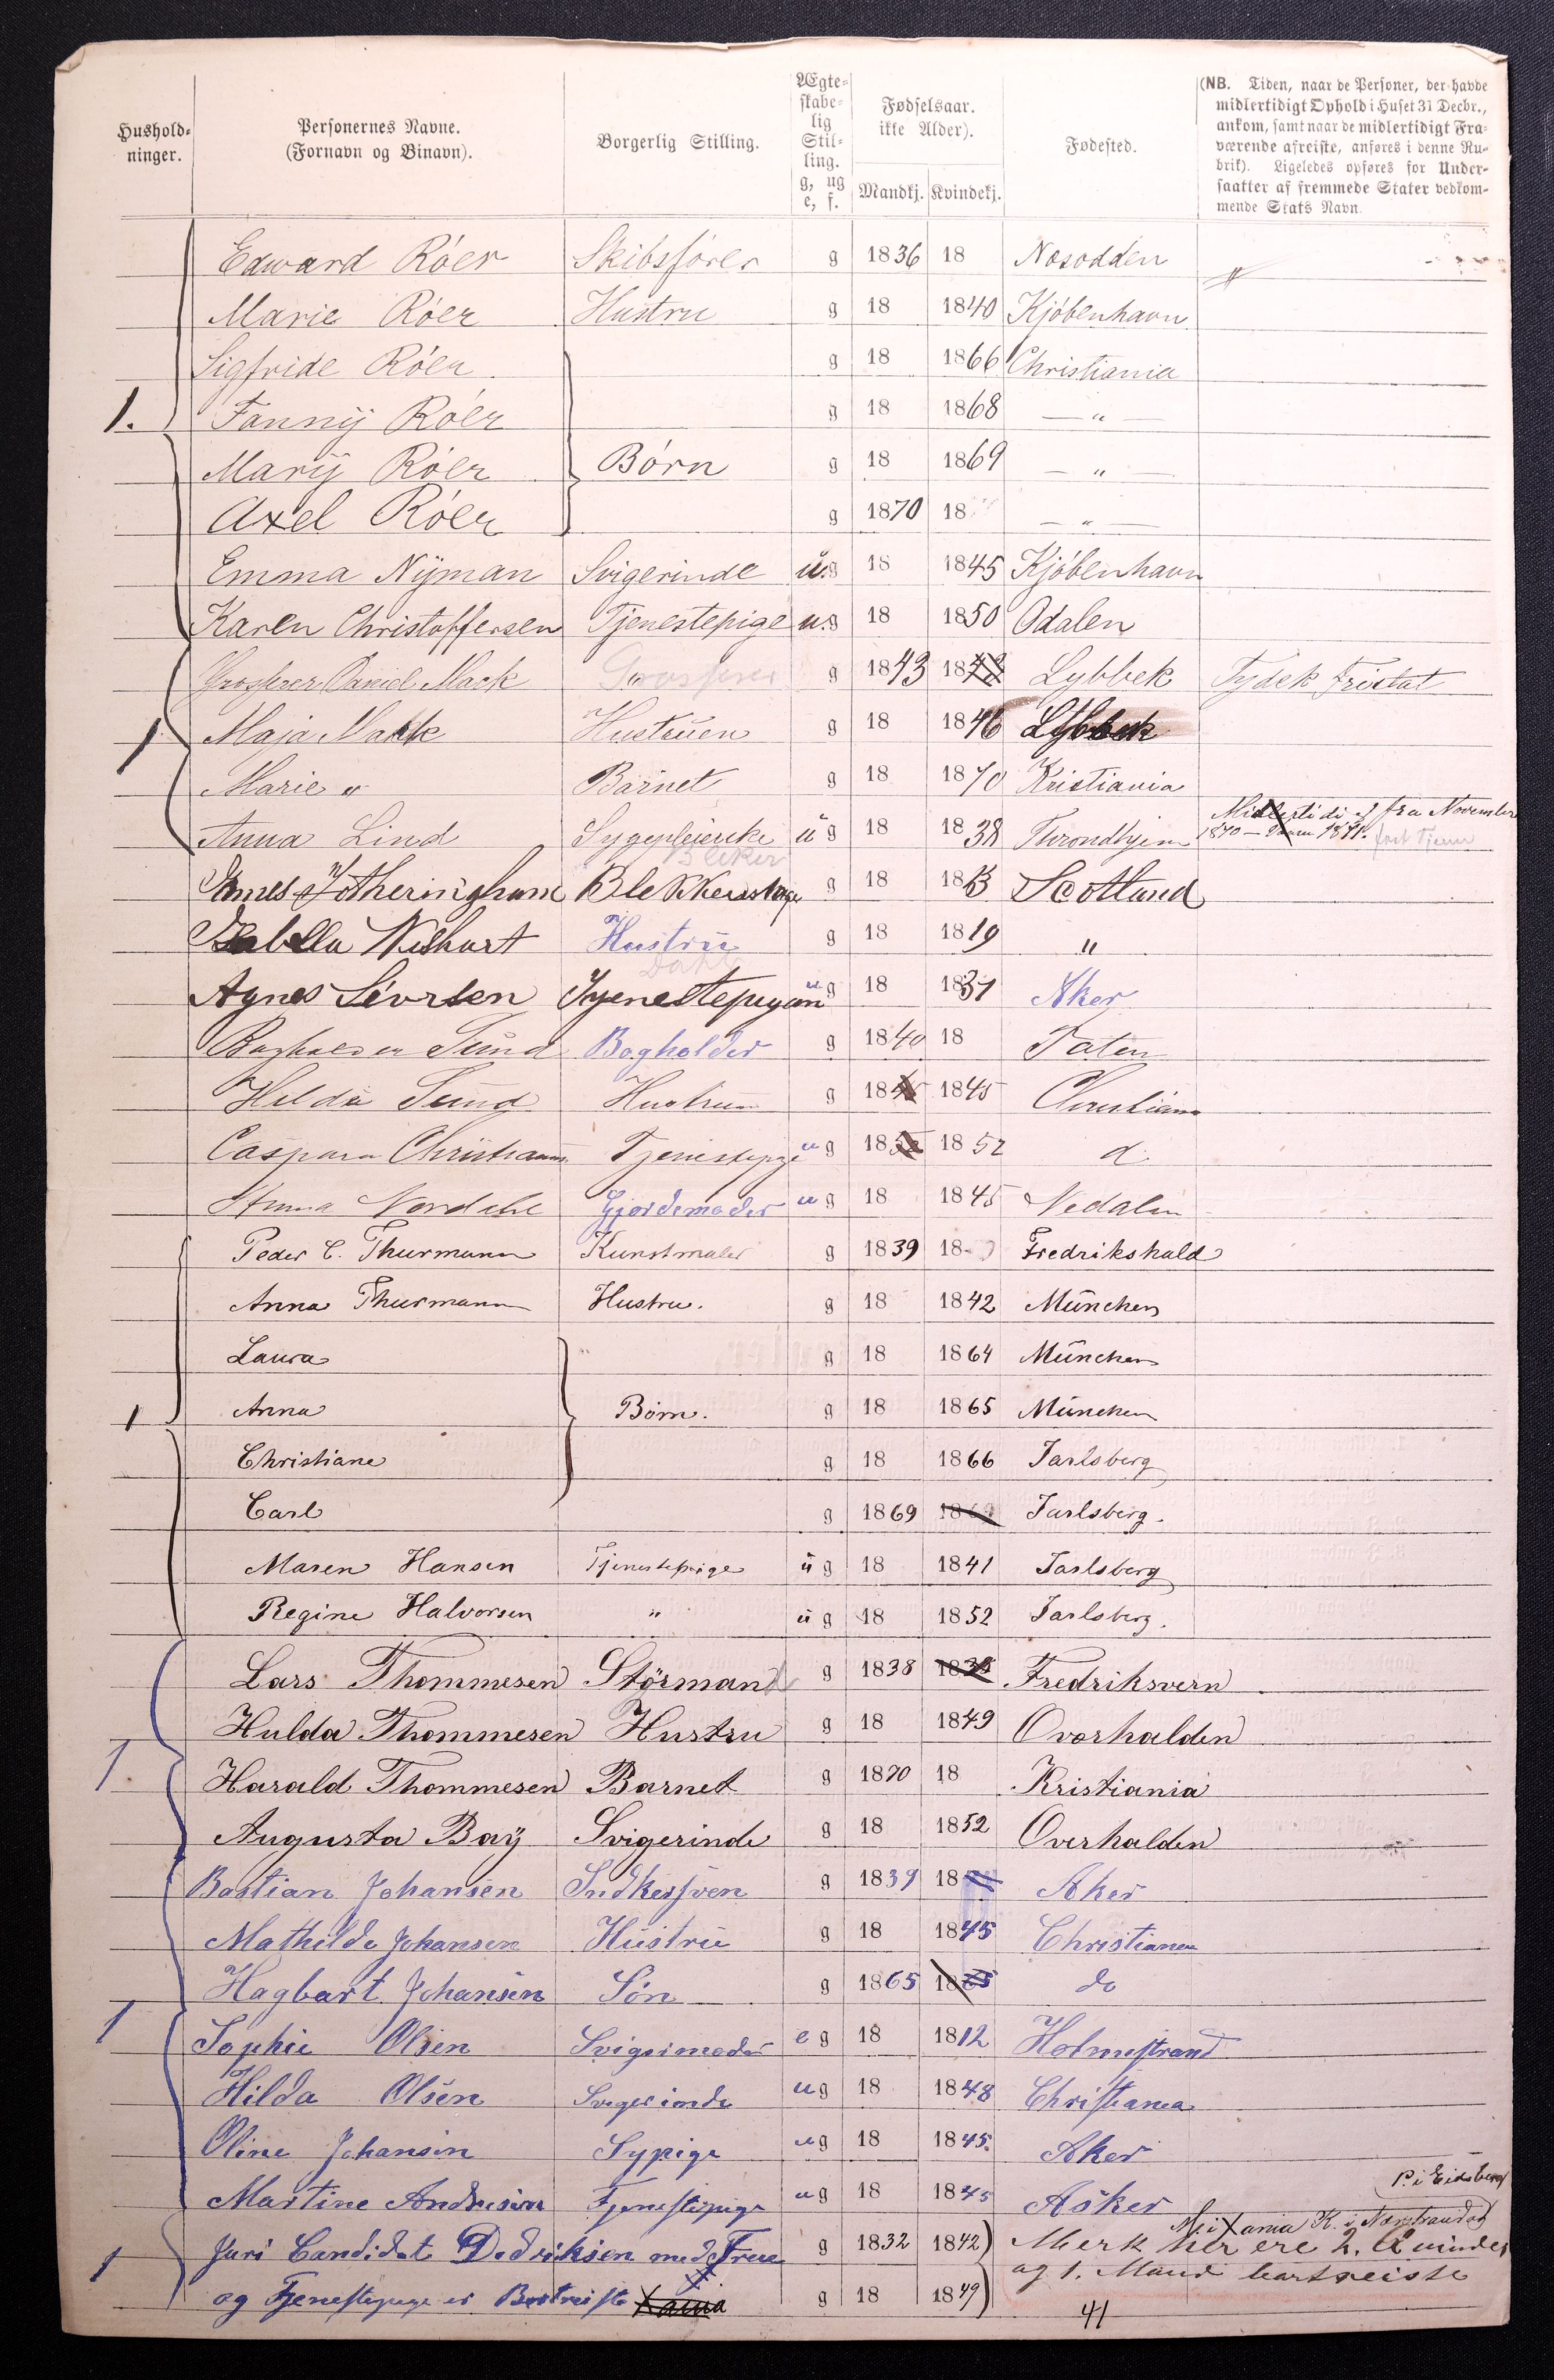 Hushold-
ninger.
Personernes Navne.
(Fornavn og Binavn).
Borgerlig Stilling.
Ægte-
skabe-
lig
Stil-
ling.
g, ug
e, f.
Fødselsaar.
(ikke Alder).
Mandkj. Kvindekj.
Fødested.
(NB. Tiden, naar de Personer, der havde
midlertidigt Ophold i Huset 31 Decbr.,
ankom, samt naar de midlertidigt Fra-
værende afreiste, anføres i denne Ru-
brik). Ligeledes opføres for Under-
saatter af fremmede Stater vedkom-
mende Stats Navn.
Edward Róer Skibsfører g 1836 18 Nosodden
Marie Róer Hustru g 18 1840 Kjóbenhavn
Sigfride Róer g 18 1866 Christiania
1. Fannÿ Róer g 18 1868 — " —
Marÿ Róer Børn g 18 1869 — " —
Axel Róer g 1870 18 — " —
Emma Nÿman Svigerinde u.g 18 1845 Kjóbenhavn
Karen Christoffersen Tjenestepige u.g 18 1850 Odalen
Grosserer Daniel Mack Grosserer g 1843 18 Lybbek Tydsk Fristat
1 Maja Mack Hustruen g 18 1846 Lybbek
Marie " Barnet g 18 1870 Kristiania
Anna Lind Sygepleierske u g 18 1838 Throndhjem Midlertidig fra November
1870 — 1871.
Fotheringham g 18 18 Scotland
Isabella Wishart Hustru g 18 1819 "
Agnes Sivrsen Tjenestepigen u g 18 1831 Aker
Bogholder Sund Bogholder g 1840 18 Toten
Hilda Sund Hustru g 18 1845 Christiania
Caspara Christians Tjenestepige u g 18 1852 d
Anna Nordahl Gjordemoder u g 18 1845 Nedalen
Peder C. Thurmann Kunstmaler g 1839 18 Fredrikshald
Anna Thurmann Hustru. g 18 1842 München
Laura g 18 1864 München
1 Anna Børn. g 18 1865 München
Christiane g 18 1866 Jarlsberg
Carl g 1869 18 Jarlsberg.
Maren Hansen Tjenestepige u g 18 1841 Jarlsberg
Regine Halvorsen " u g 18 1852 Jarlsberg.
Lars Thommesen Störmand g 1838 1838 Fredriksvern
Hulda Thommesen Hustru g 18 1849 Overhalden
1. Harald Thommesen Barnet g 1870 18 Kristiania
Augusta Baÿ Svigerinde g 18 1852 Overhalden
Bastian Johansen Snedkersven g 1839 18 Aker
Mathilde Johansen Hustru g 18 1845 Christiania
Hagbart Johansen Sön g 1865 1865 do
1 Sophie Olsen Svigermoder e g 18 1812 Holmestrand
Hilda Olsen Svigerinde u g 18 1848 Christiania
Oline Johansen Sypige u g 18 1845. Aker
Martine Andresen Tjenestepige u g 18 1845 Asker
P. i Eidsberg
M. i Xania K. i
1 Juri Candidat Dedriksen med Frue g 1832 1842) Merk her ere 2. Qvinder
og Tjenestepige er Bortreiste Xania g 18 1849) og 1. Mand bortreiste
41